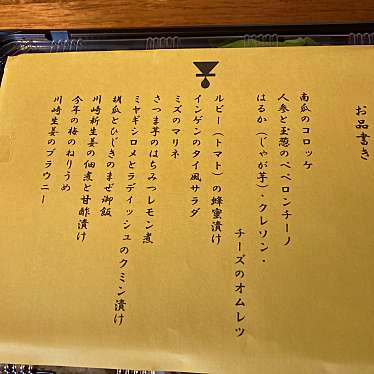 お品書き
南瓜のコロッケ
人参と玉葱のペペロンチーノ
はるか（じゃが芋）・クレソン・
チーズのオムレツ
ルビー（トマト）の蜂蜜漬け
インゲンのタイ風サラダ
ミズのマリネ
さつま芋のはちみつレモン煮
ミヤギシロメとラディッシュのクミン漬け
胡瓜とひじきのまぜ御飯
川崎新生姜の佃煮と甘酢漬け
今年の梅のねりうめ
川崎生姜のブラウニー